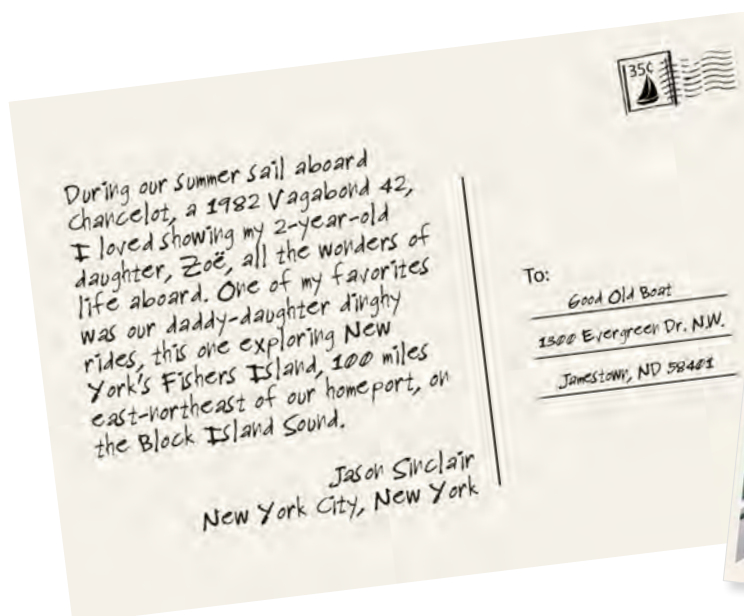 35¢
During our summer sail aboard
Chancelot, a 1982 Vagabond 42,
I loved showing my 2-year-old
daughter, Zoë, all the wonders of
life aboard. One of my favorites
was our daddy-daughter dinghy
rides, this one exploring New
York's Fishers Island, 100 miles
east-northeast of our homeport, on
the Block Island Sound.
Jason Sinclair
New York City, New York
To:
Good Old Boat
1300 Evergreen Dr. N.W.
Jamestown, ND 58401